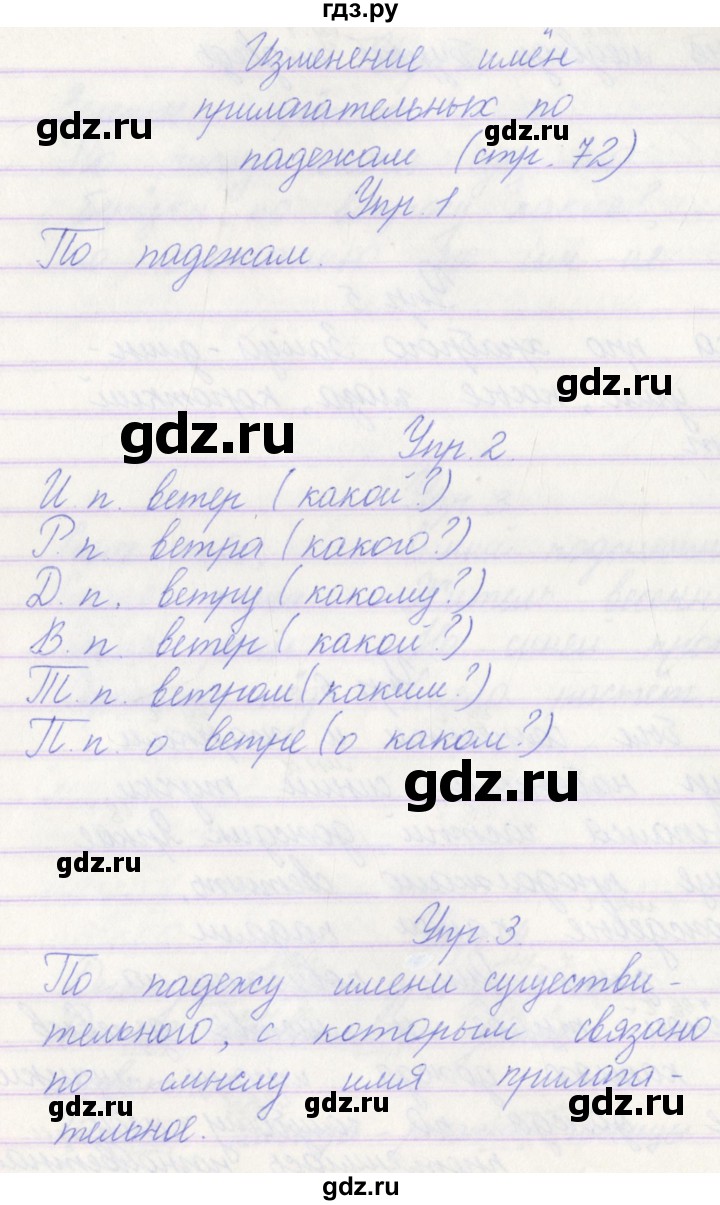 гдз.ру
Изменение имён
прилагательных по
падежам (стр. 72)
gdz.ru
gdz.ru
Упр. 1
По падежам.
gdz.ru
gdz.ru
Упр. 2.
И. п. ветер (какой?)
Р. п. ветра (какого?)
Д. п. ветру (какому?)
В. п. ветер (какой?)
Т. п. ветром (каким?)
П. п. о ветре (о каком?)
gdz.ru
gdz.ru
Упр. 3.
По падежу имени существи-
тельного, с которым связано
по смыслу имя прилага-
тельное.
gdz.ru
gdz.ru
gdz.ru
gdz.ru